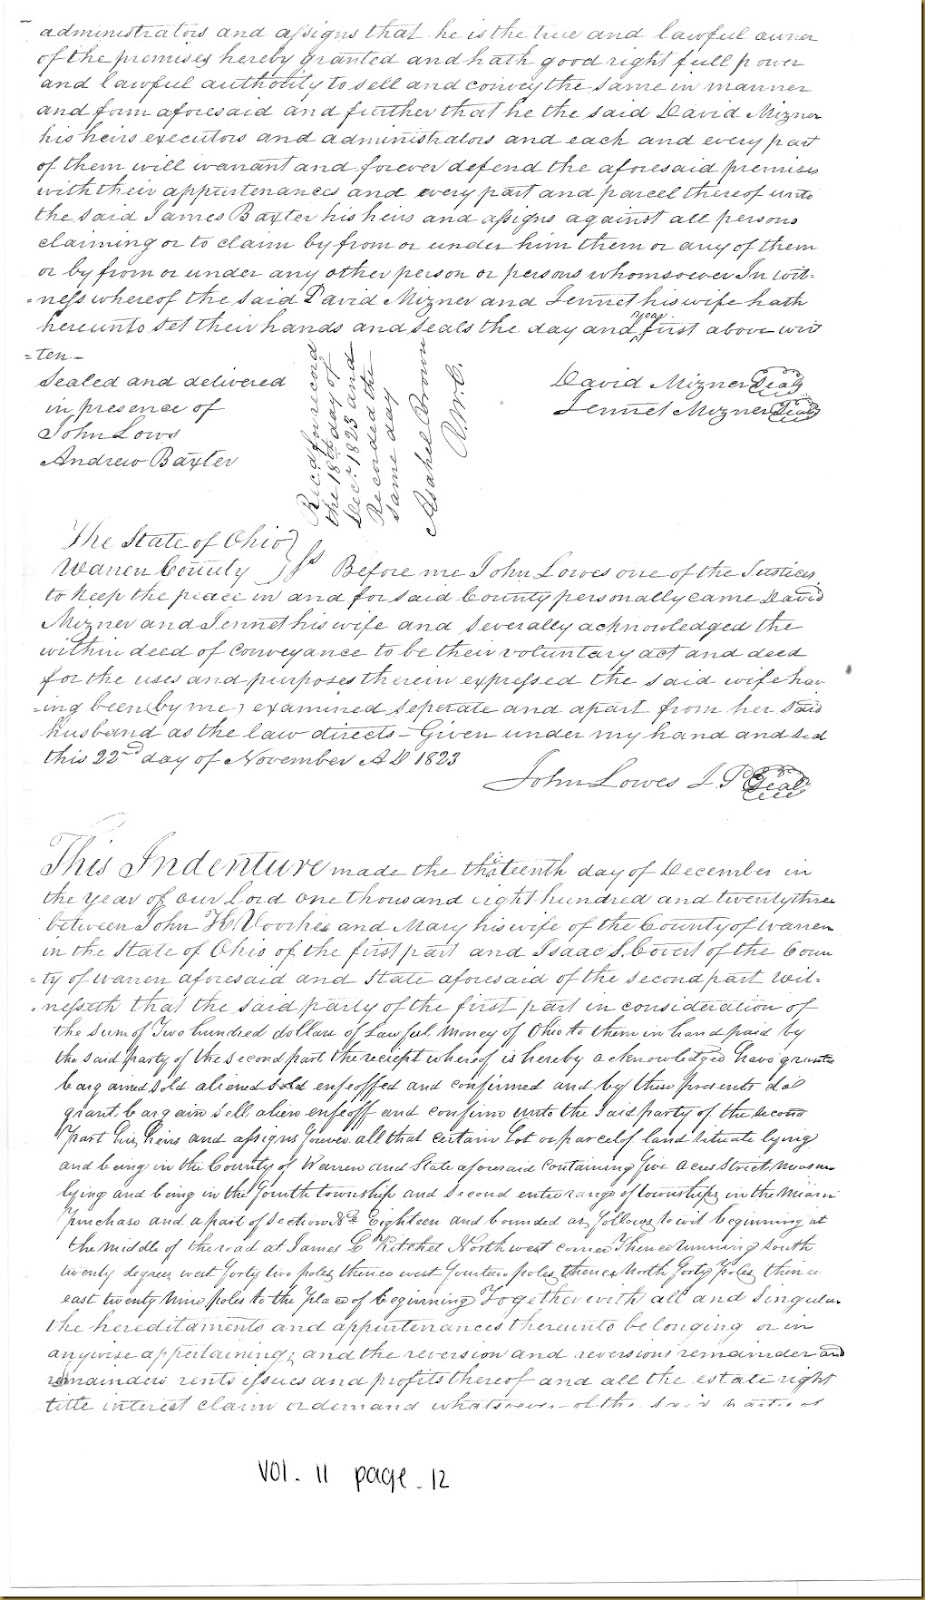 administrators and assigns that he is the true and lawful owner
of the premises hereby granted and hath good right full power
and lawful authority to sell and convey the same in manner
and form aforesaid and further that he the said David Mizner
his heirs executors and administrators and each and every part
of them will warrant and forever defend the aforesaid premises
with their appurtenances and every part and parcel thereof unto
the said James Baxter his heirs and assigns against all persons
claiming or to claim by from or under him them or any of them
or by from or under any other person or persons whomsoever In wit-
-ness whereof the said David Mizner and Jennet his wife hath
hereunto set their hands and seals the day and year first above writ
-ten-
Sealed and delivered
in presence of
John Lows
Andrew Baxter
Recd for record
the 18th day of
Decr. 1823 and
Recorded the
same day
Asahel Brown
R.W.C.
David Mizner Seal
Jennet Mizner Seal
The State of Ohio
Warren County } Ss Before me John Lowes one of the Justices
to keep the peace in and for said County personally came David
Mizner and Jennet his wife and severally acknowledged the
within deed of conveyance to be their voluntary act and deed
for the uses and purposes therein expressed the said wife hav
-ing been (by me) examined seperate and apart from her said
husband as the law directs - Given under my hand and seal
this 22nd day of November AD 1823
John Lowes J.P. Seal
This Indenture made the thirteenth day of December in
the year of our Lord one thousand eight hundred and twenty three
between John K Voorhies and Mary his wife of the County of Warren
in the State of Ohio of the first part and Isaac S. Covert of the Coun
-ty of Warren aforesaid and State aforesaid of the second part wit-
-nesseth that the said party of the first part in consideration of
the sum of Two hundred dollars of Lawful money of Ohio to them in hand paid by
the said party of the second part the reciept whereof is hereby acknowledged have granted
bargained sold aliened sold enfeoffed and confirmed and by these presents do
grant bargain sell alien enfeoff and confirm unto the said party of the second
part his heirs and assigns forever all that certain Lot or parcel of land situate lying
and being in the County of Warren and State aforesaid containing five acres Strict measure
lying and being in the fourth township and second entire range of townships in the Miami
Purchase and a part of Section No. Eighteen and bounded as follows to wit beginning at
the middle of the road at James C Kitchel North west corner Thence running south
twenty degrees west forty two poles thence west fourteen poles thence North forty poles thence
east twenty nine poles to the place of beginning Together with all and singular
the hereditaments and appurtenances thereunto belonging or in
anywise appertaining, and the reversion and reversions remainder and
remainders rents issues and profits thereof and all the estate right
title interest claim or demand whatsoever of the said parties of
Vol. 11 page. 12